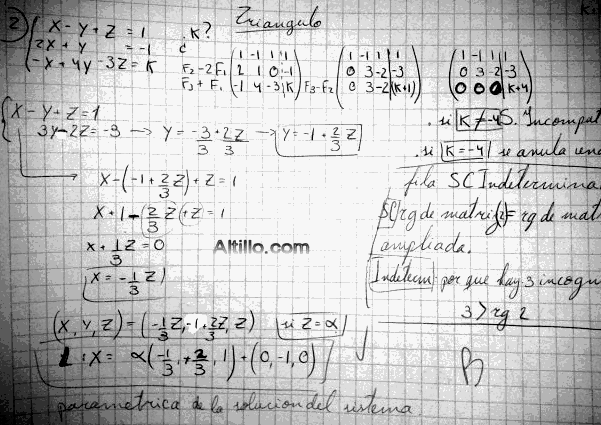 Triangulo
2) { x - y + z = 1
2x + y = -1
-x + 4y - 3z = K
¿ K?
F2-2F1
F3+F1
( 1 -1 1 | 1
2 1 0 | -1
-1 4 -3 | K )
F3-F2
( 1 -1 1 | 1
0 3 -2 | -3
0 3 -2 | (K+1) )
( 1 -1 1 | 1
0 3 -2 | -3
0 0 0 | K+4 )
{ x - y + z = 1
3y - 2z = -3 → y = -3/3 + 2z/3 → y = -1 + 2/3 z
x - (-1 + 2/3 z) + z = 1
x + 1 - 2/3 z + z = 1
x + 1/3 z = 0
x = -1/3 z
Altillo.com
(x, y, z) = (-1/3 z, -1 + 2z/3, z) si z = α
L: x = α(-1/3, +2/3, 1) + (0, -1, 0)
parametrica de la solucion del sistema.
. si K ≠ -4 S. Incompat
. si K = -4 se anula una
fila SC Indetermina
SC/rg de matriz = rg de mat
ampliada.
Indeterm: por que hay 3 incogn
3 > rg 2
B